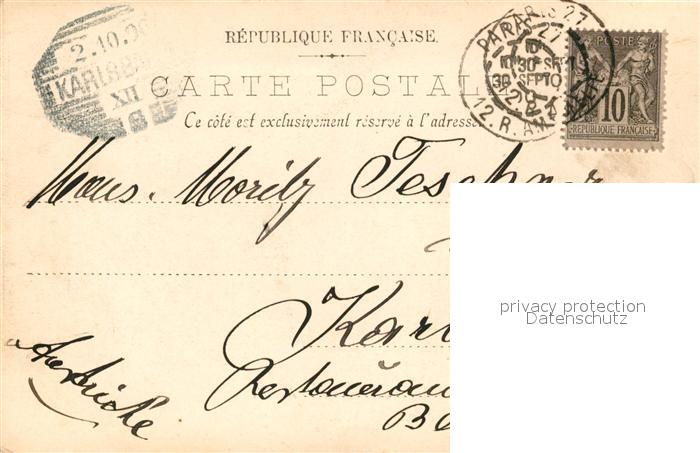 2.10.00
KARLSB
XII
RÉPUBLIQUE FRANÇAISE.
CARTE POSTAL
Ce côté est exclusivement réservé à l'adresse
PARIS 27
30 SEPT
12. R. AM
POSTE
10
REPUBLIQUE FRANÇAISE
Mons. Moritz Teschner
Kar
Restauran
Autriche
privacy protection
Datenschutz